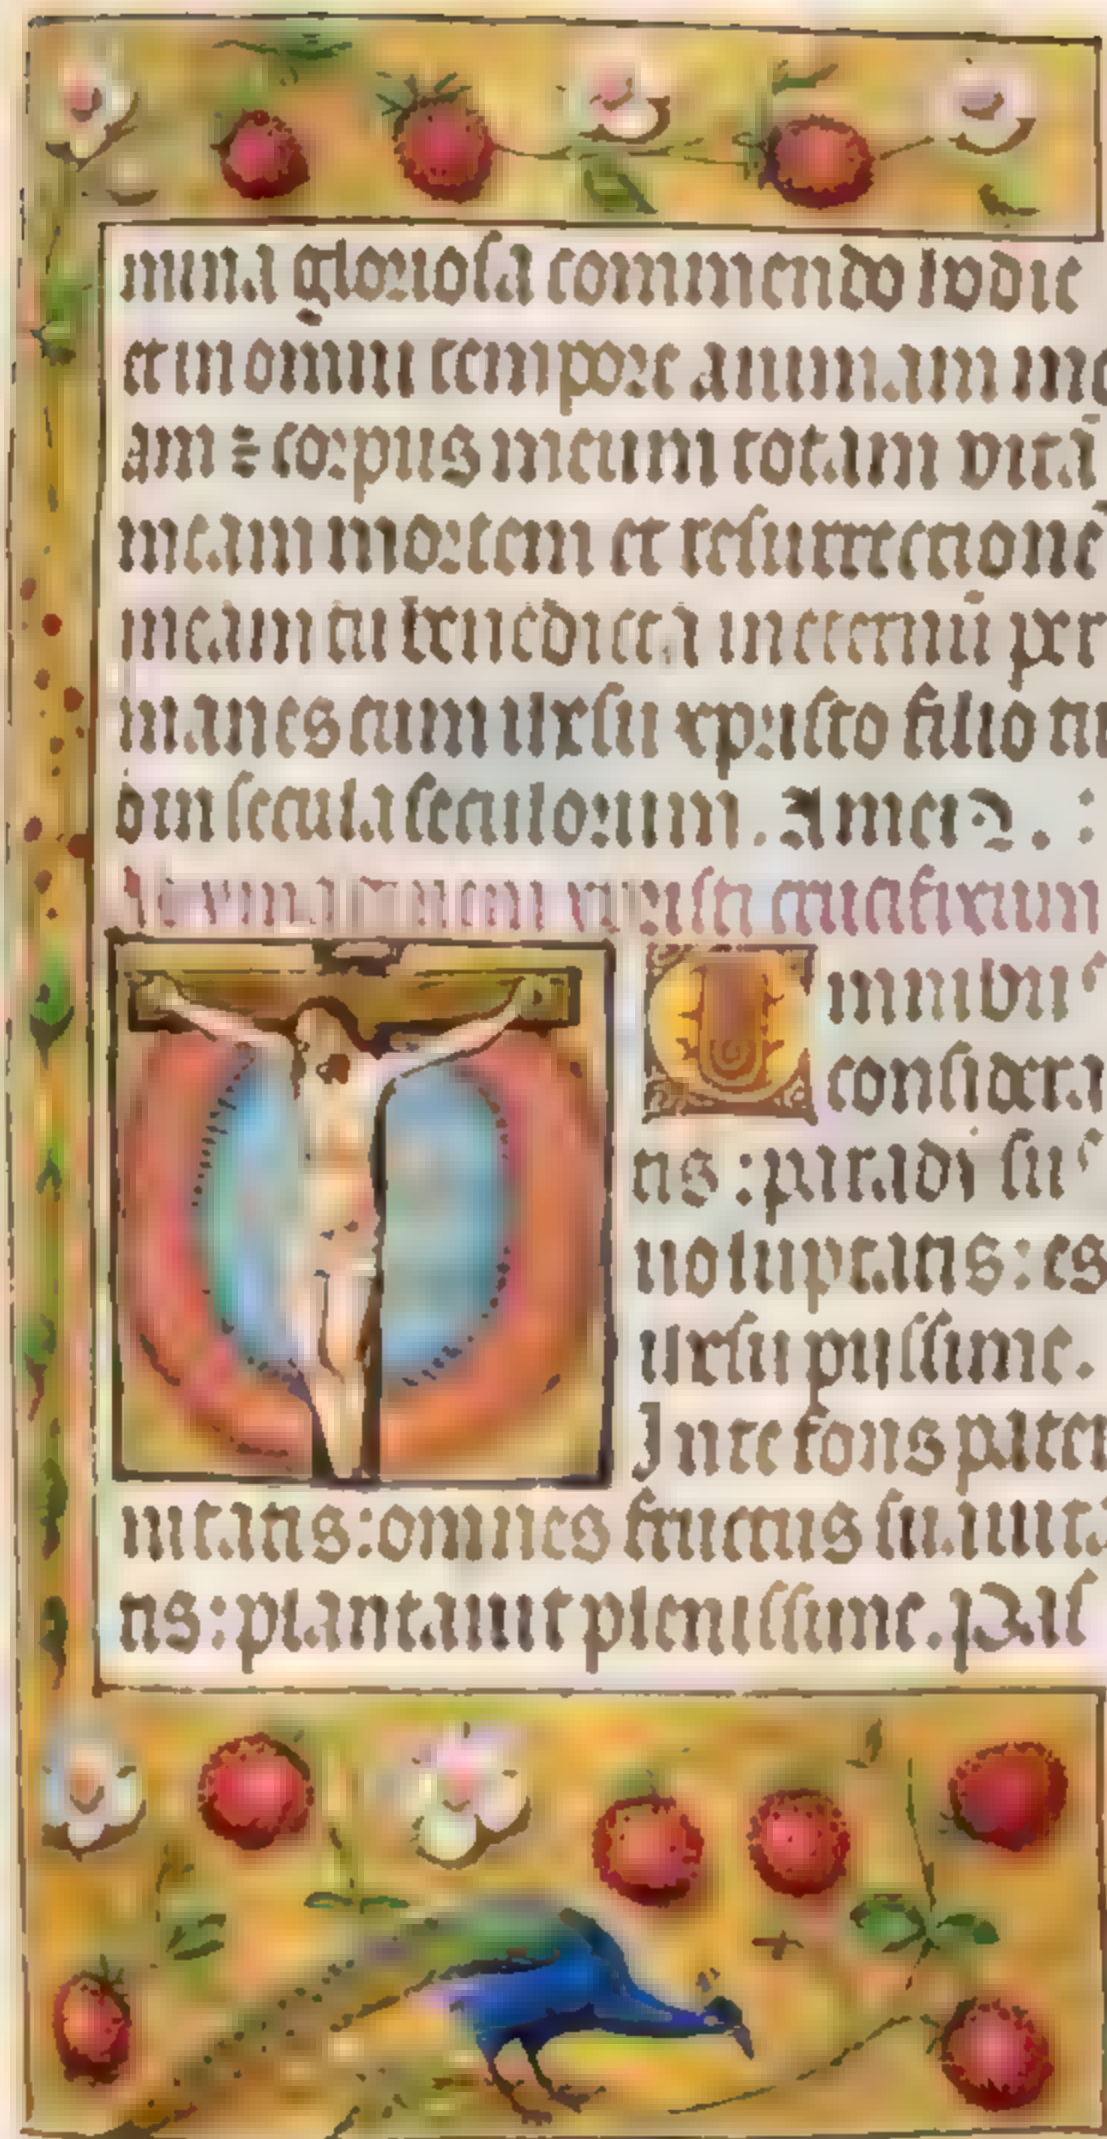 mina gloriosa commendo hodie
et in omni tempore animam me
am ⁊ corpus meum totam vitā
meam mortem et resurrectionē
meam tu benedicta in eternū per
manes cum ihesu xpristo filio tu
o in secula seculorum. Amen.
cristi crucifixum
Omnibus
considera
tis: paradisus
uoluptatis: es
ihesu piissime.
In te fons pater
nitatis: omnes fructus suauita
tis: plantauit plenissime. Pas